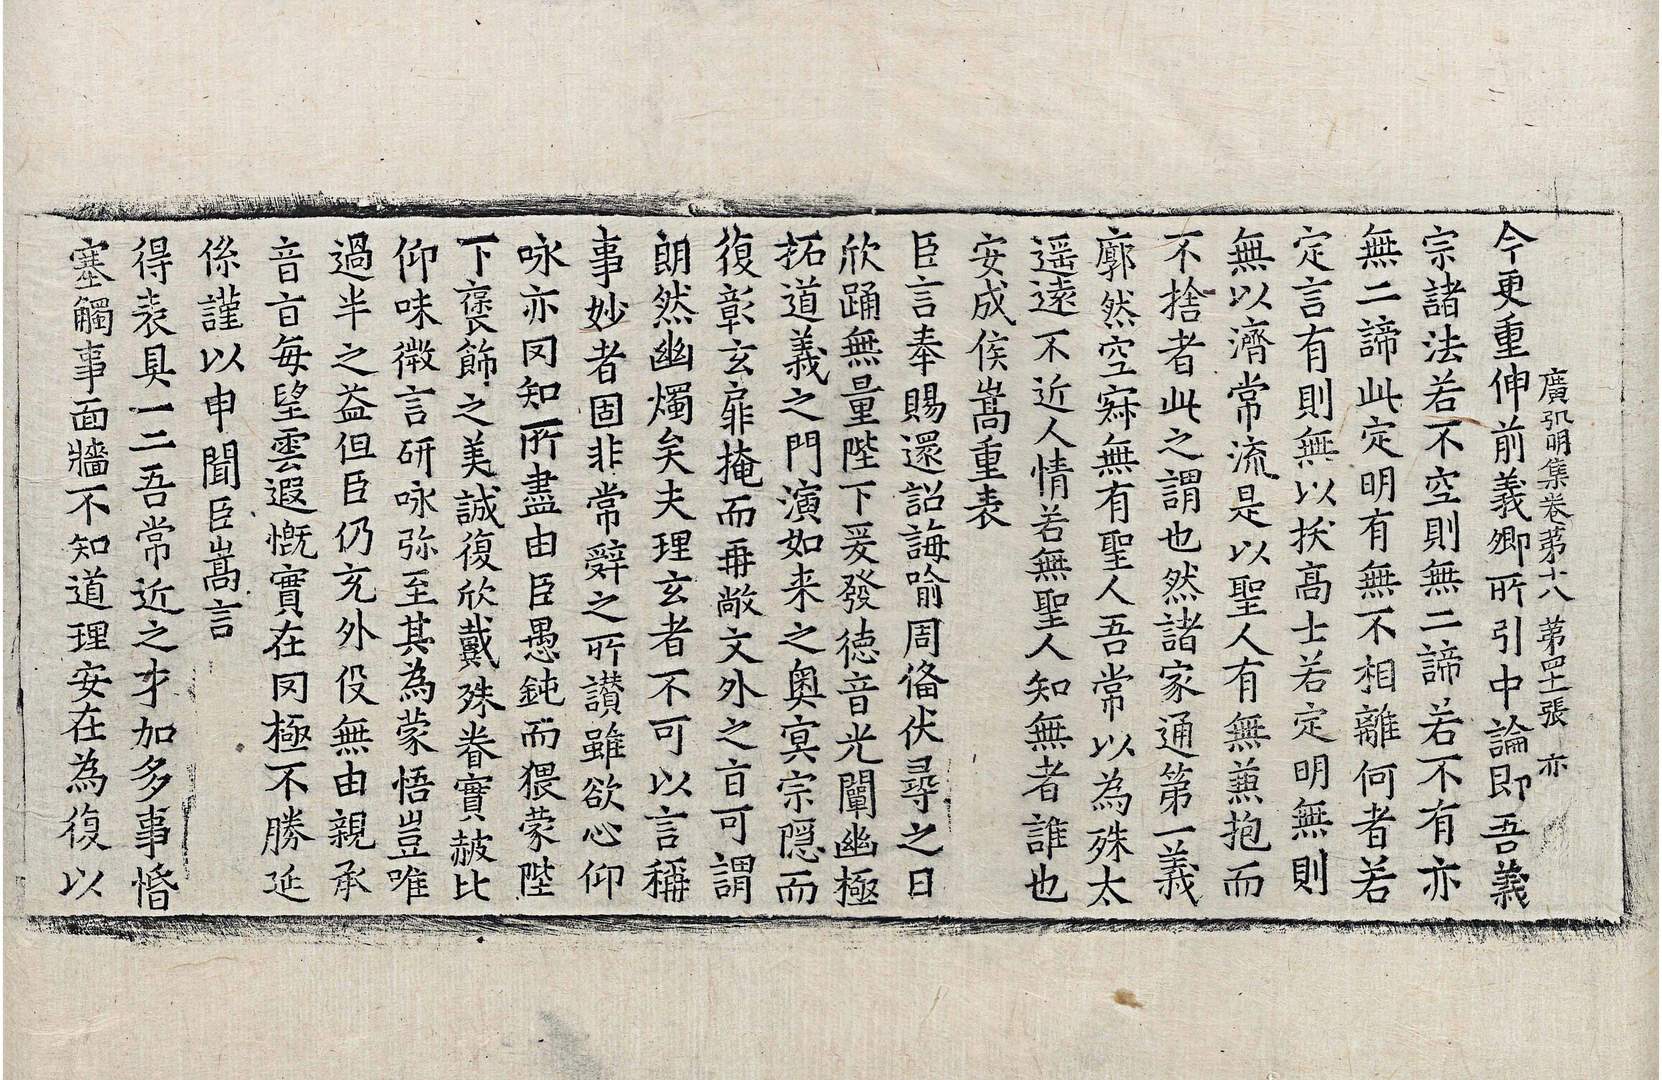 廣弘明集卷第十八 第四十一張 亦
今更重伸前義卿所引中論即吾義
宗諸法若不空則無二諦若不有亦
無二諦此定明有無不相離何者若
定言有則無以拔高士若定明無則
無以濟常流是以聖人有無兼抱而
不捨者此之謂也然諸家通第一義
廓然空寂無有聖人吾常以為殊太
遥遠不近人情若無聖人知無者誰也
安成侯嵩重表
臣言奉賜還詔誨喻周俻伏尋之日
欣踊無量陛下爰發德音光闡幽極
拓道義之門演如来之奥冥宗隱而
復彰玄扉掩而再敞文外之㫖可謂
朗然幽燭矣夫理玄者不可以言稱
事妙者固非常辭之所讃雖欲心仰
咏亦罔知所盡由臣愚鈍而猥蒙陛
下褒飾之美誠復欣戴殊眷實赧比
仰味微言研咏弥至其為蒙悟豈唯
過半之益但臣仍充外役無由親承
音㫖每望雲遐慨實在罔極不勝延
係謹以申聞臣嵩言
得表具一二吾常近之才加多事惛
塞觸事面牆不知道理安在為復以